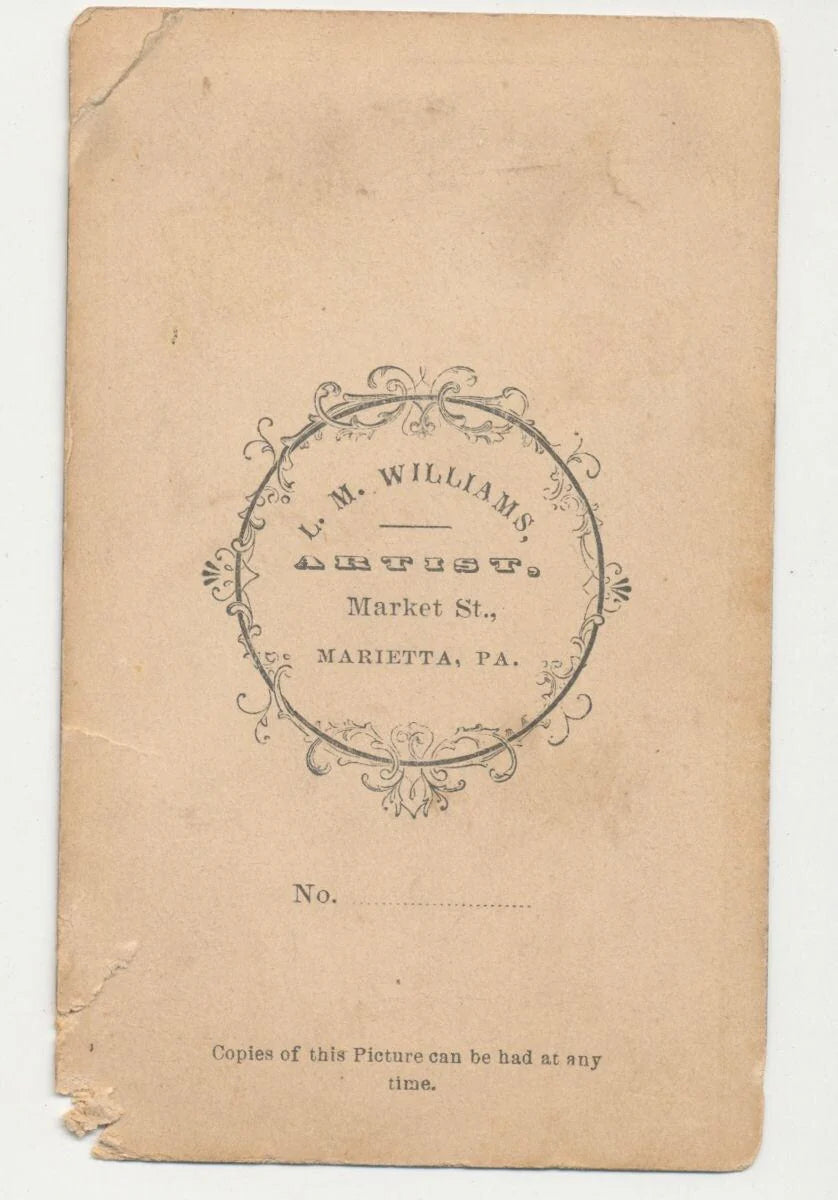 L. M. WILLIAMS,
ARTIST,
Market St.,
MARIETTA, PA.
No. ........................
Copies of this Picture can be had at any
time.